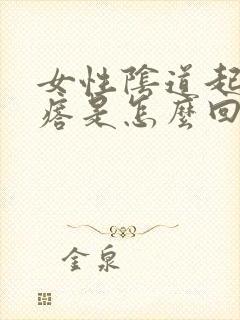 女性陰道起
痞是怎麼回
金泉